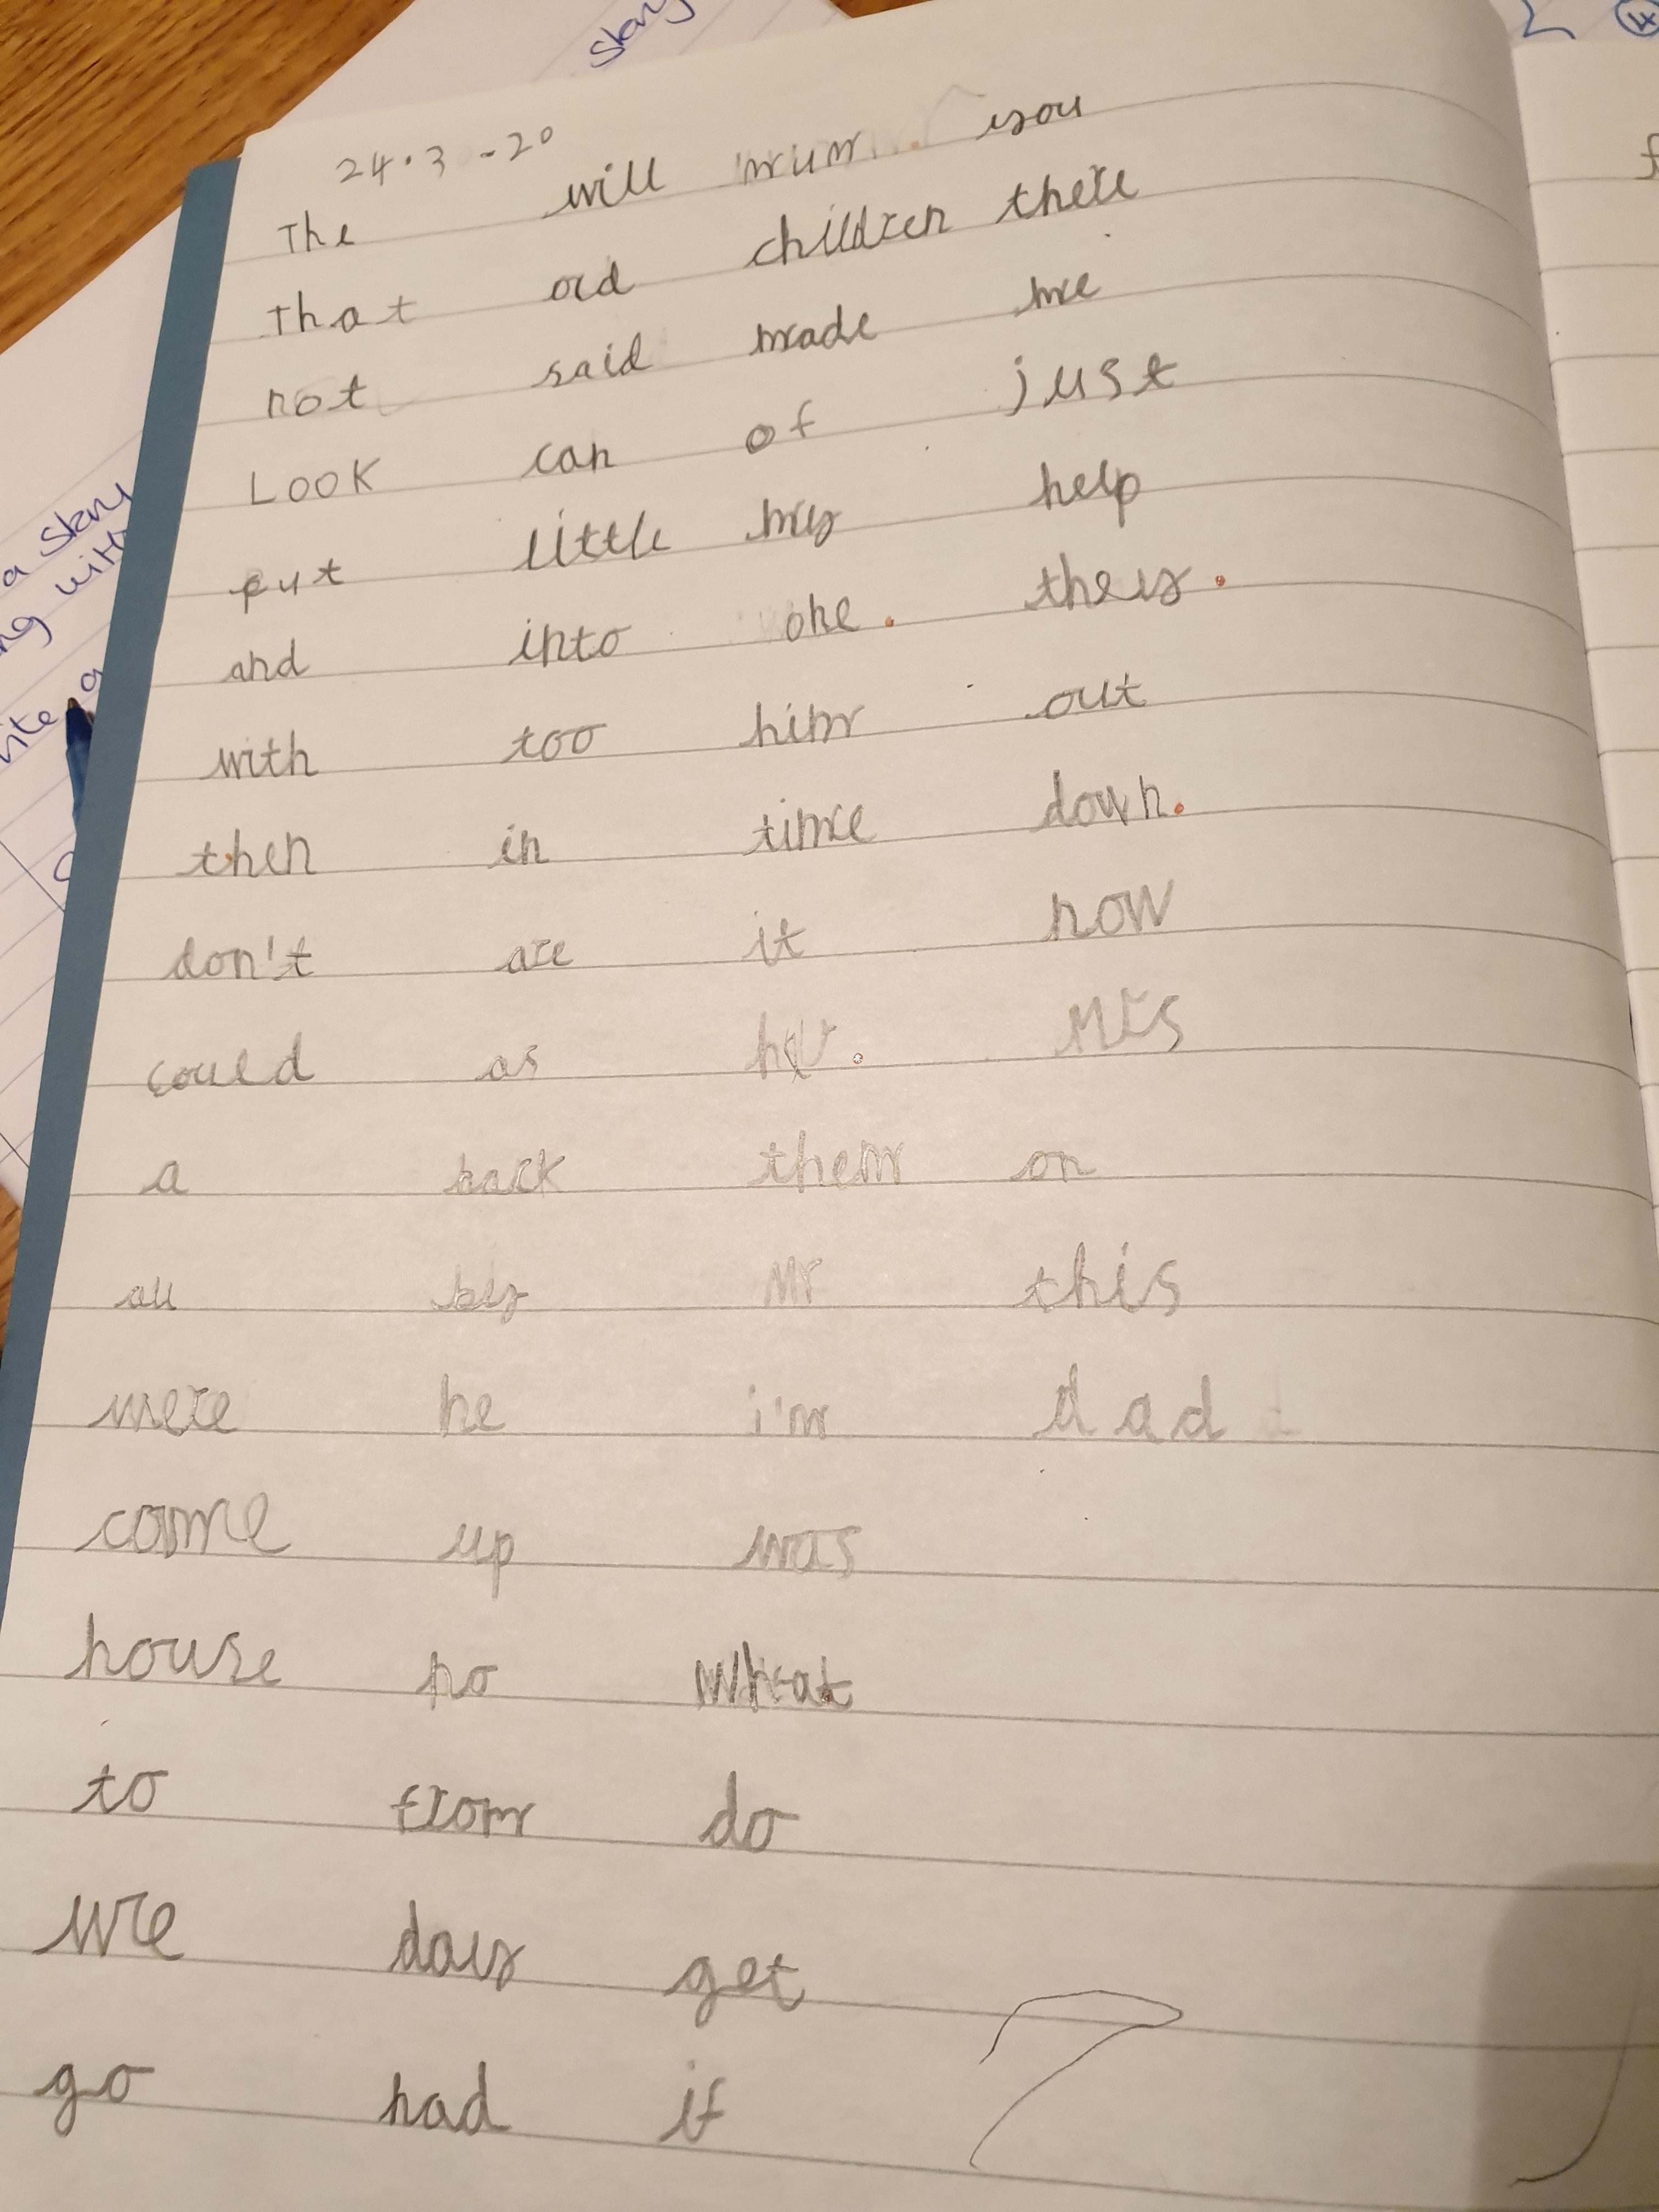 story
4
24.3-20
The will mum. you
That old children there
not said made me
Look can of just
put little my help
and into one. they.
with too him out
then in time down.
don't are it now
could as Mrs
a back them on
all by Mr this
were he i'm dad
come up was
house no what
to from do
we day get
go had if
a story